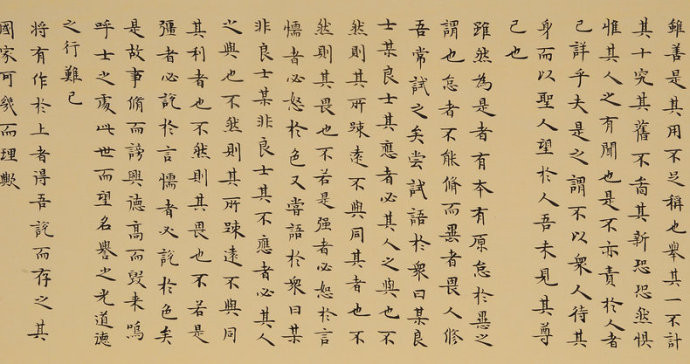 雖善是其用不足稱也舉其一不計
其十究其舊不啚其新恐恐然惧
惟其人之有聞也是不亦責於人者
已詳乎夫是之謂不以衆人待其
身而以聖人望於人吾未見其尊
己也
雖然為是者有夲有原怠於惡之
謂也怠者不能脩而者畏人修
吾常試之矣嘗試語於衆曰某良
士某良士其應者必其人之與也不
然則其所踈遠不與同其者也不
然則其畏也不若是强者必怒於言
懦者必怒於色又嘗語於衆曰某
非良士某非良士其不應者必其人
之與也不然則其所踈遠不與同
其利者也不然則其畏也不若是
彊者必說於言懦者必說於色矣
是故事脩而謗興德高而毁来嗚
呼士之處此世而望名譽之光道德
之行難已
將有作於上者得吾說而存之其
國家可幾而理歟